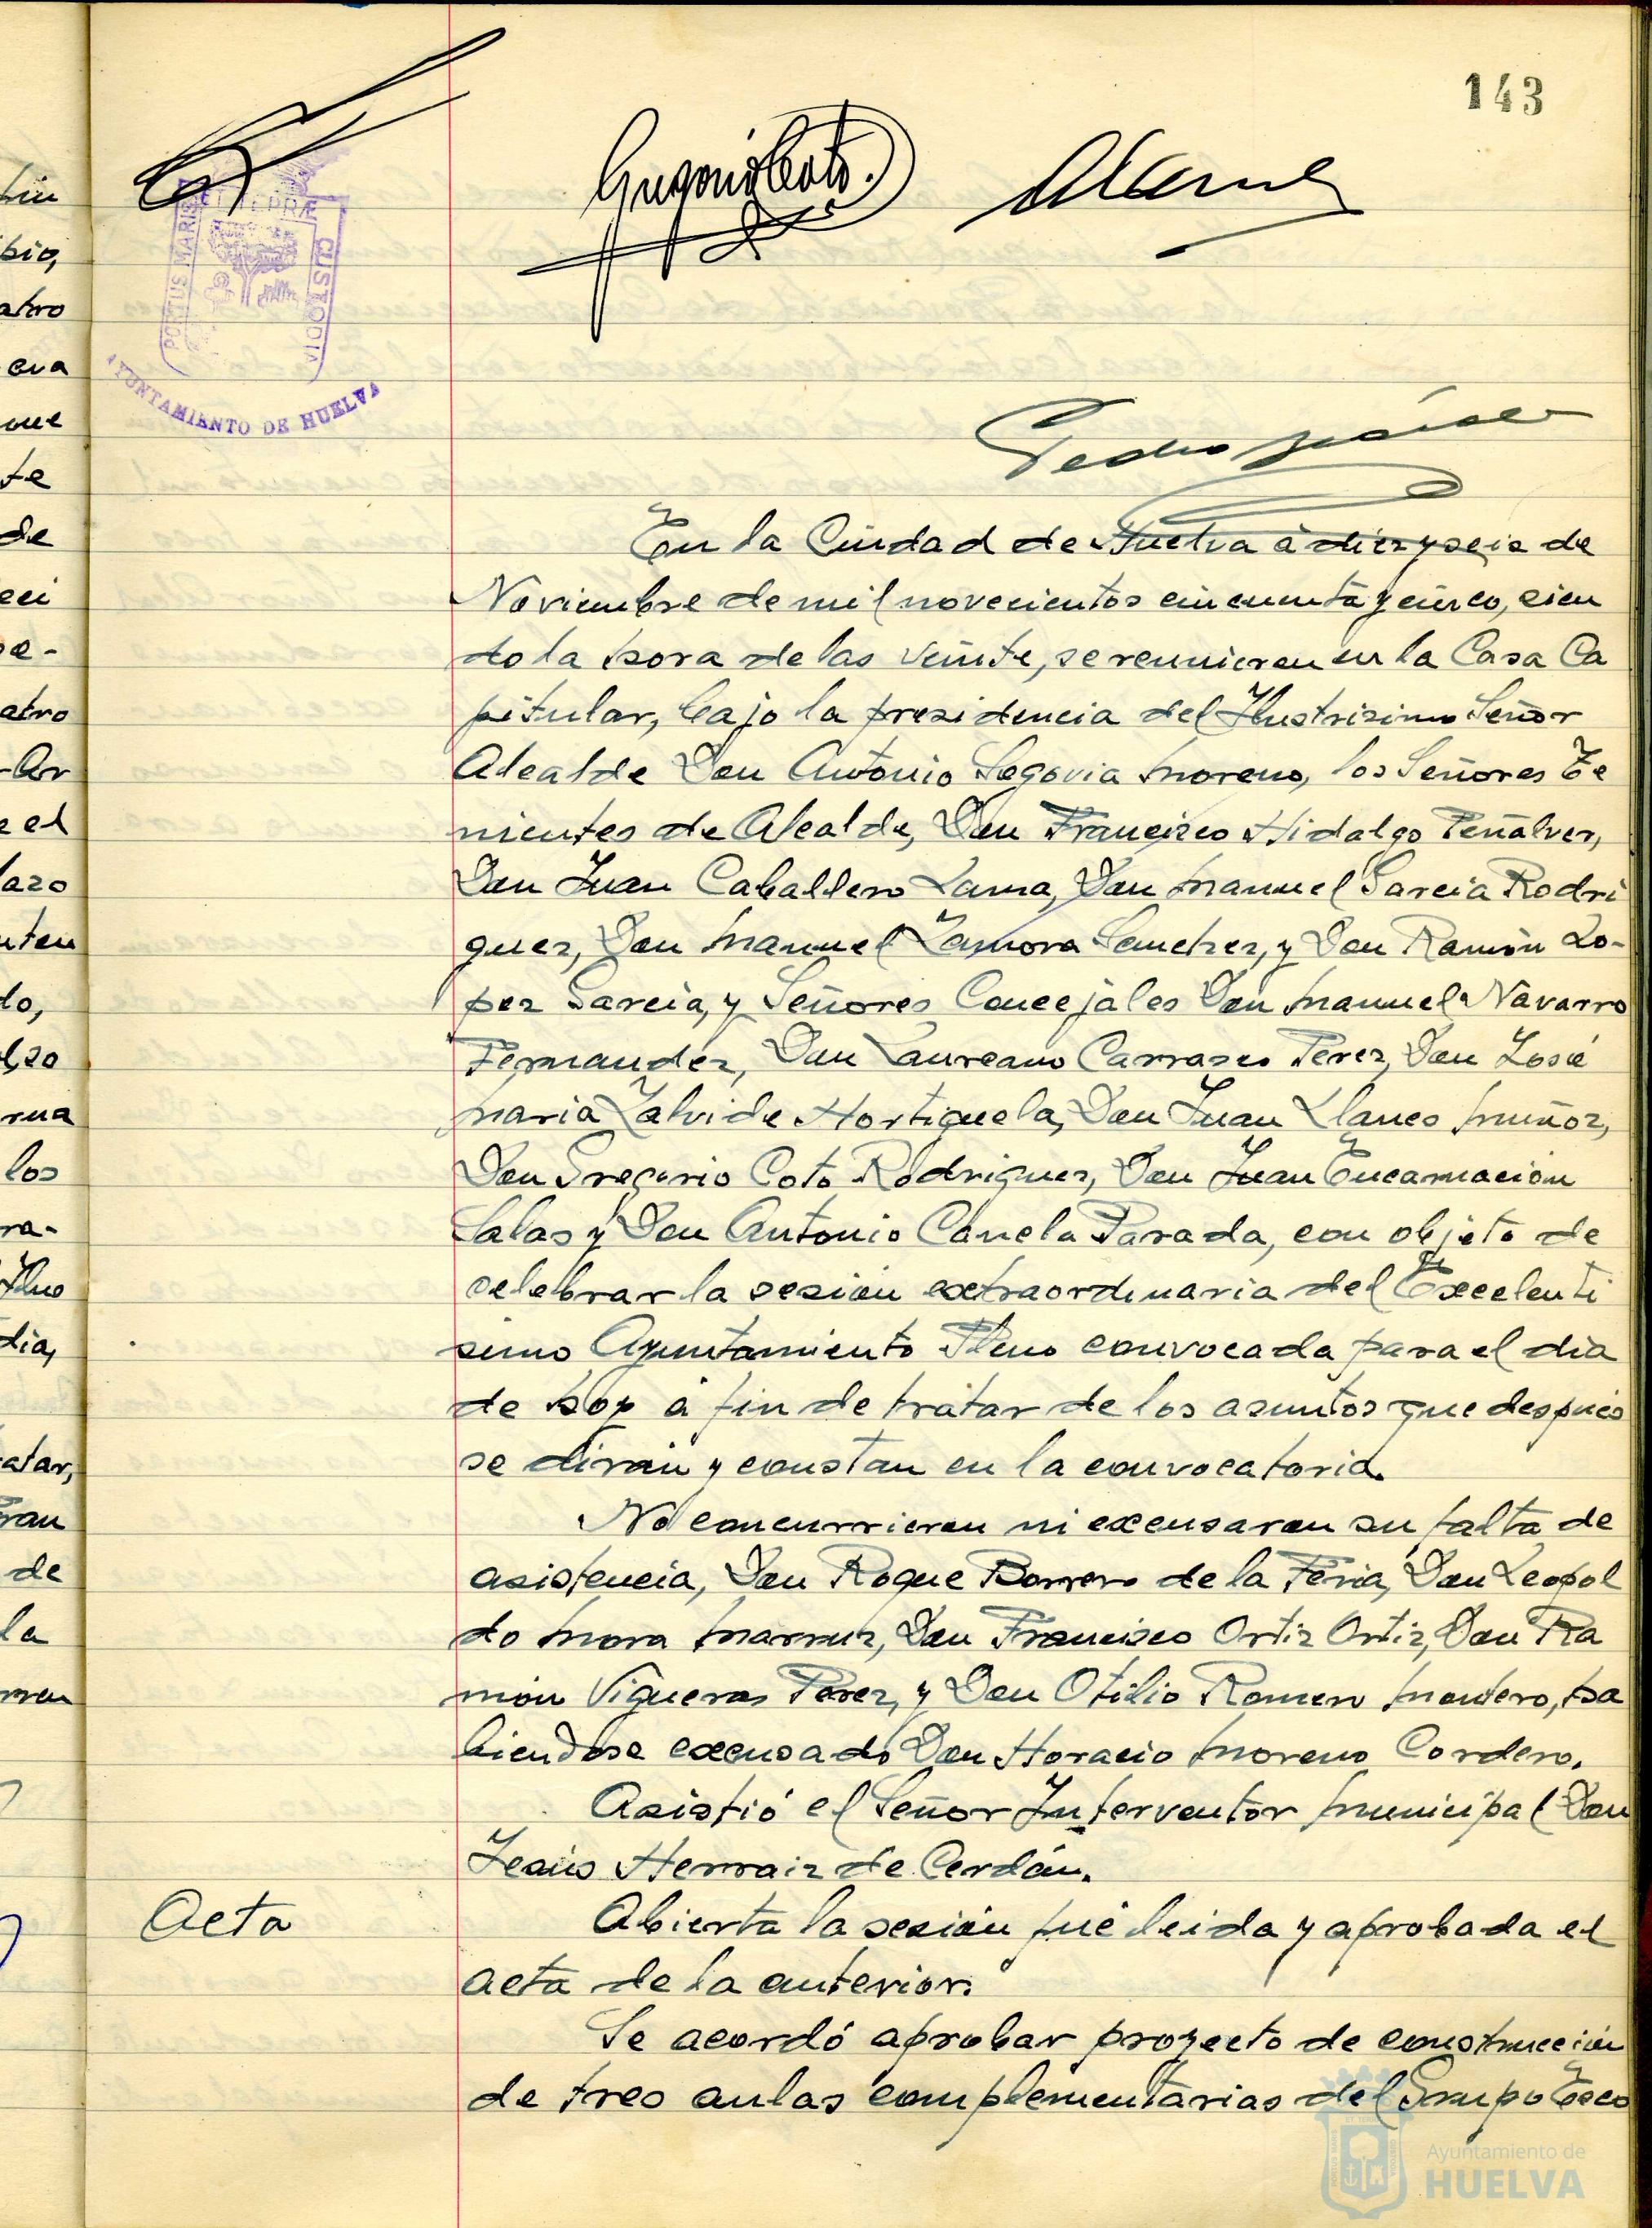 143
Gregorio Coto.
PORTUS MARIS
ET TERRÆ
CUSTODIA
AYUNTAMIENTO DE HUELVA
Pedro
En la Ciudad de Huelva á diez y seis de
Noviembre de mil novecientos cincuenta y cinco, sien
do la hora de las veinte, se reunieron en la Casa Ca
pitular, bajo la presidencia del Ilustrisimo Señor
Alcalde Don Antonio Segovia Moreno, los Señores Te
nientes de Alcalde, Don Francisco Hidalgo Peñalver,
Don Juan Caballero Lama, Don Manuel Garcia Rodri
guez, Don Manuel Zamora Sanchez, y Don Ramón Lo-
pez Garcia, y Señores Concejales Don Manuel Navarro
Fernandez, Don Laureano Carrasco Perez, Don José
Maria Zalvide Hortiguela, Don Juan Llanes Muñoz,
Don Gregorio Coto Rodriguez, Don Juan Encarnación
Salas y Don Antonio Canela Parada, con objeto de
celebrar la sesión extraordinaria del Excelenti
simo Ayuntamiento Pleno convocada para el dia
de hoy á fin de tratar de los asuntos que después
se dirán y constan en la convocatoria.
No concurrieron ni excusaron su falta de
asistencia, Don Roque Borrero de la Feria, Don Leopol
do Mora Marruz, Don Francisco Ortiz Ortiz, Don Ra
món Vigueras Perez, y Don Otilio Romero Montero, ha
biendose excusado Don Horacio Moreno Cordero.
Asistió el Señor Interventor Municipal Don
Jesús Herraiz de Cerdán.
Acta
Abierta la sesión fué leida y aprobada el
acta de la anterior.
Se acordó aprobar proyecto de construcción
de tres aulas complementarias del Grupo Esco
Ayuntamiento de
HUELVA